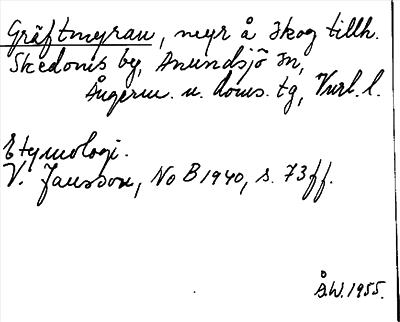 Gräftmyran, myr å skog tillh.
Skedoms by, Anundsjö sn,
Ångerm. n. doms. tg, Vnrl. l.
Etymologi.
V. Jansson, No B 1940, s. 73 ff.
Å.W. 1955.